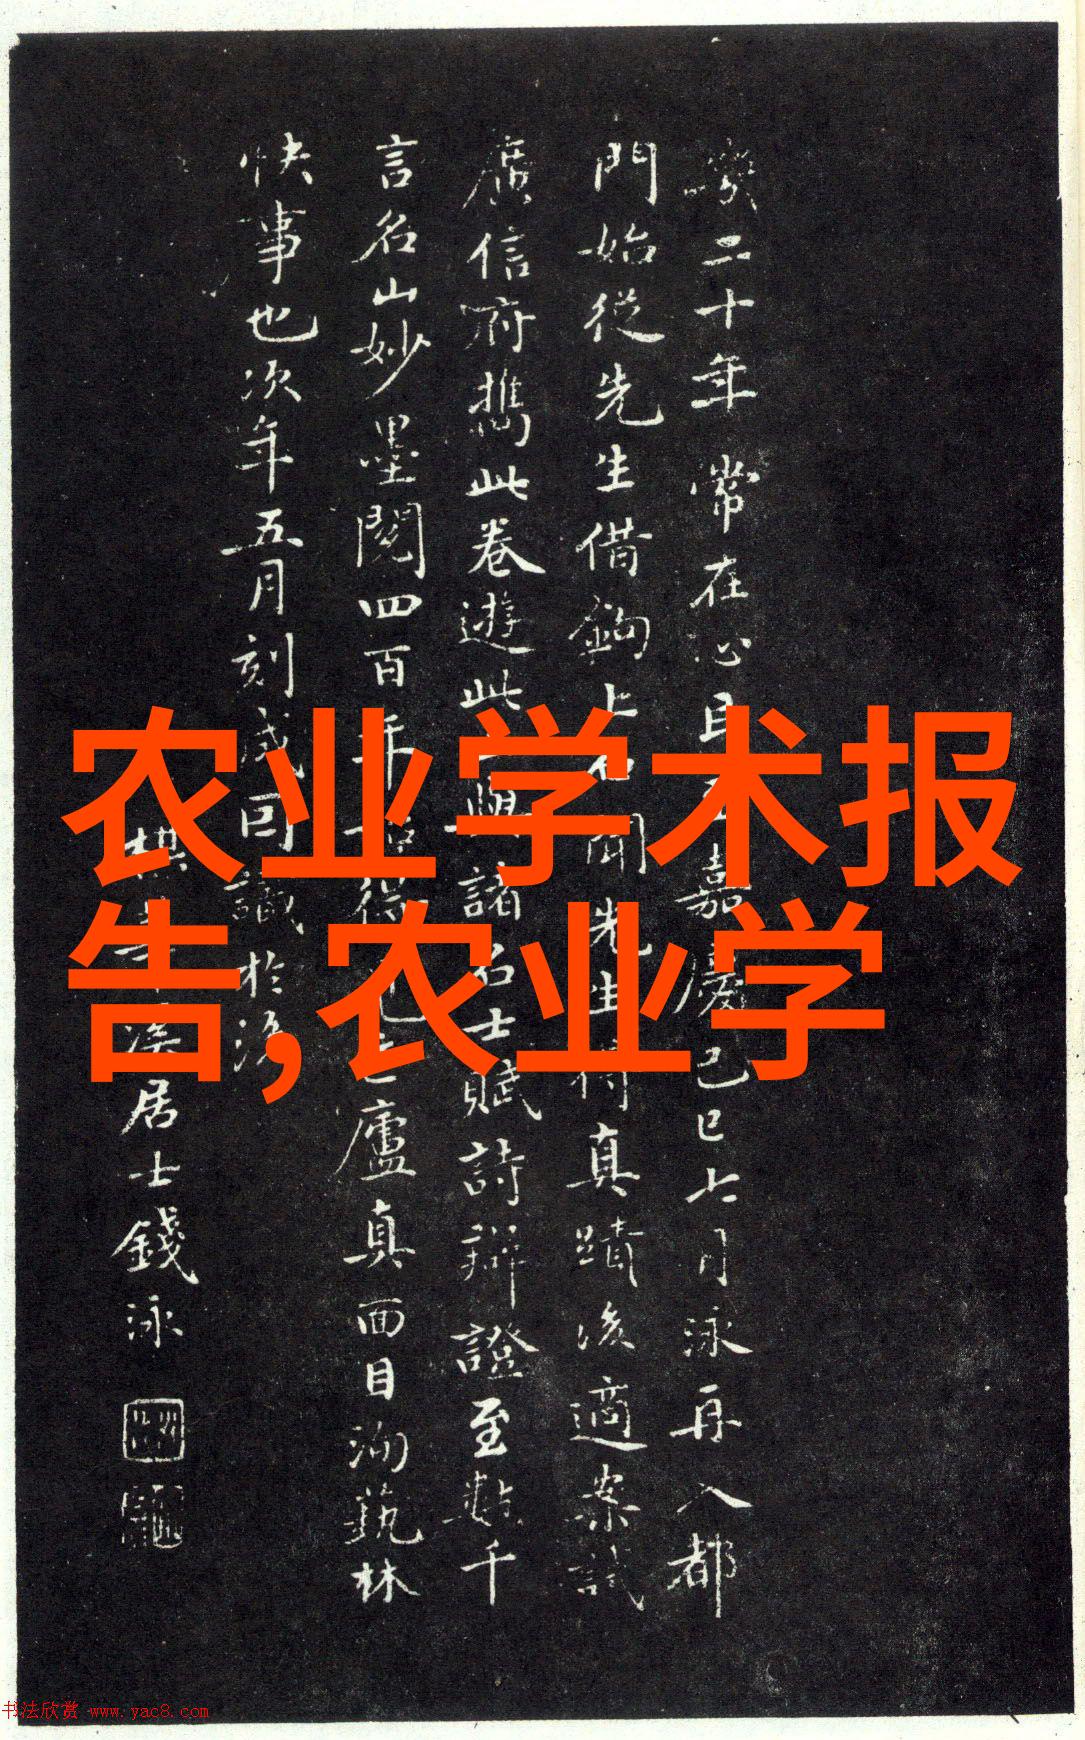 幾二十年常在心目嘉慶己巳七月泳再入都
門始從先生借鉤上石聞先生得真蹟後適案試
廣信府攜此卷遊此與諸名士賦詩辯證至數千
言名山妙墨閱四百年得廬真面目洵藝林
快事也次年五月刻成回識於
居士錢泳
农业学术报
告,农业学
书法欣赏 www.yac8.com